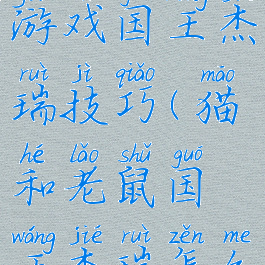 游戏国王杰
ruì jì qiǎo māo
瑞技巧(猫
hé lǎo shǔ guó
和老鼠国
wáng jié ruì zěn me
王杰瑞怎么